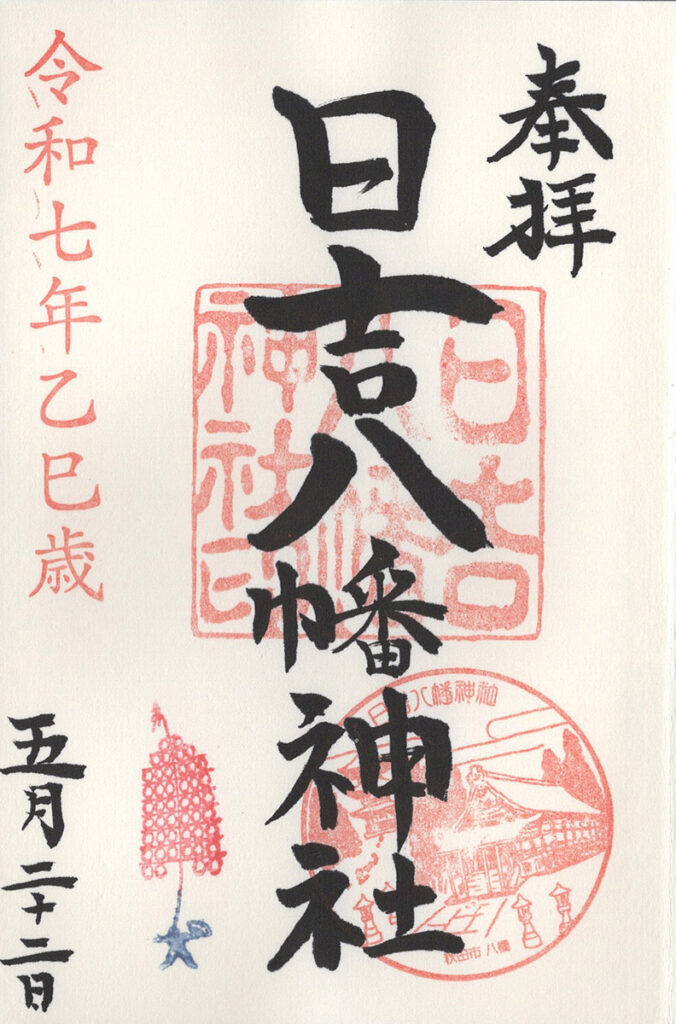 奉拝
日吉八幡神社
日吉
八幡
神社印
日吉八幡神社
秋田市 八橋
令和七年乙巳歳
五月二十二日